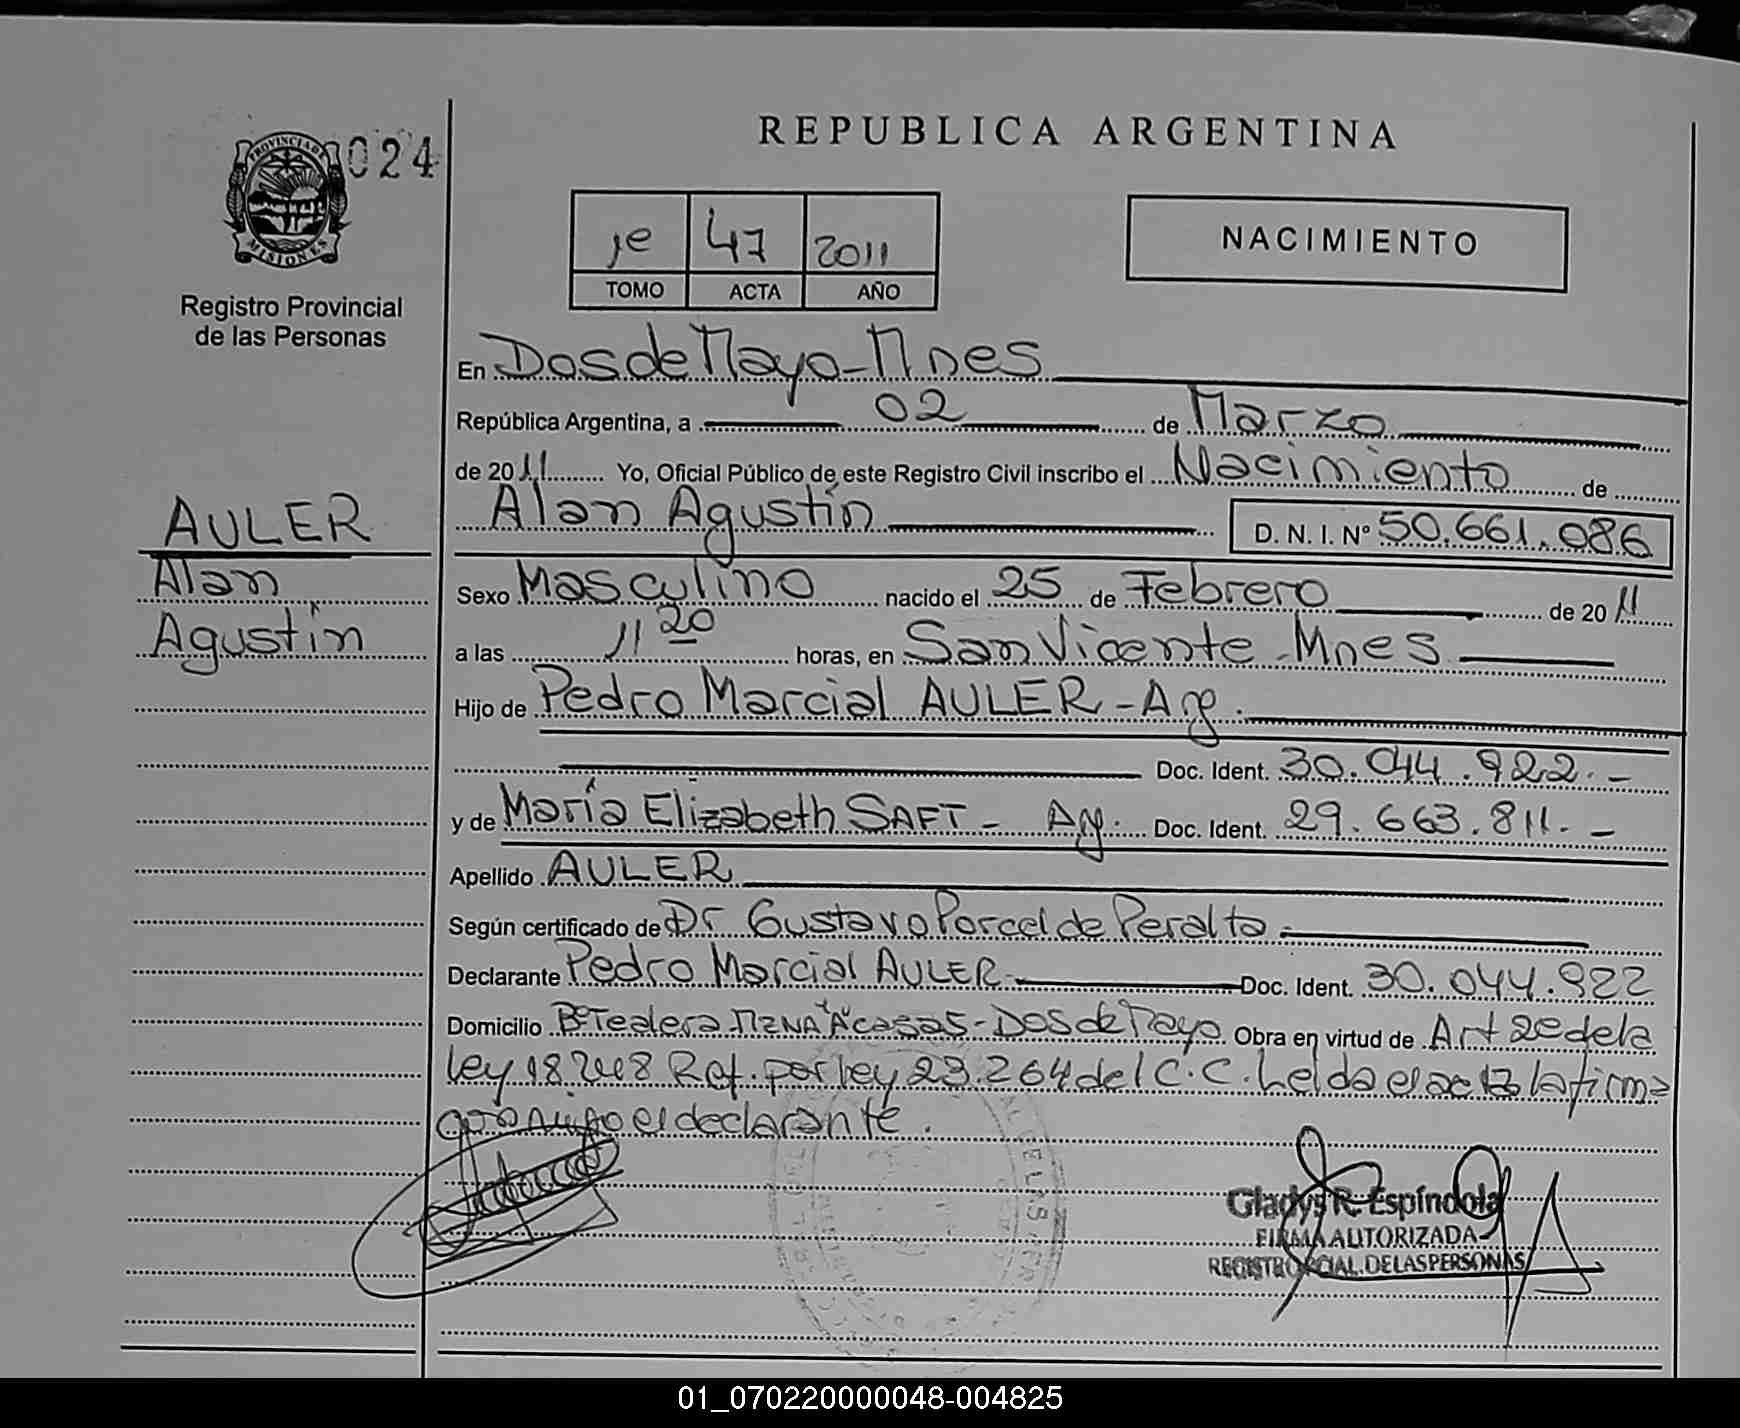 024
PROVINCIA DE
MISIONES
Registro Provincial
de las Personas
AULER
Alan
Agustín
REPUBLICA ARGENTINA
1º 47 2011
TOMO ACTA AÑO
NACIMIENTO
En Dos de Mayo - Mnes
República Argentina, a 02 de Marzo
de 2011 Yo, Oficial Público de este Registro Civil inscribo el Nacimiento de
Alan Agustín D. N. I. Nº 50.661.086
Sexo Masculino nacido el 25 de Febrero de 2011
a las 11 20 horas, en San Vicente - Mnes
Hijo de Pedro Marcial AULER - Arg.
Doc. Ident. 30.044.922.-
y de María Elizabeth SAFT - Arg. Doc. Ident. 29.663.811.-
Apellido AULER
Según certificado de Dr Gustavo Porcel de Peralta
Declarante Pedro Marcial AULER Doc. Ident. 30.044.922
Domicilio Bº Tealera MZNA "A" casa 5 - Dos de Mayo Obra en virtud de Art 2º de la
Ley 18248 Ref. por ley 23.264 del C.C. Leída el acta la firma
el declarante.
Gladys R. Espíndola
FIRMA AUTORIZADA
REGISTRO PCIAL. DE LAS PERSONAS
01_070220000048-004825